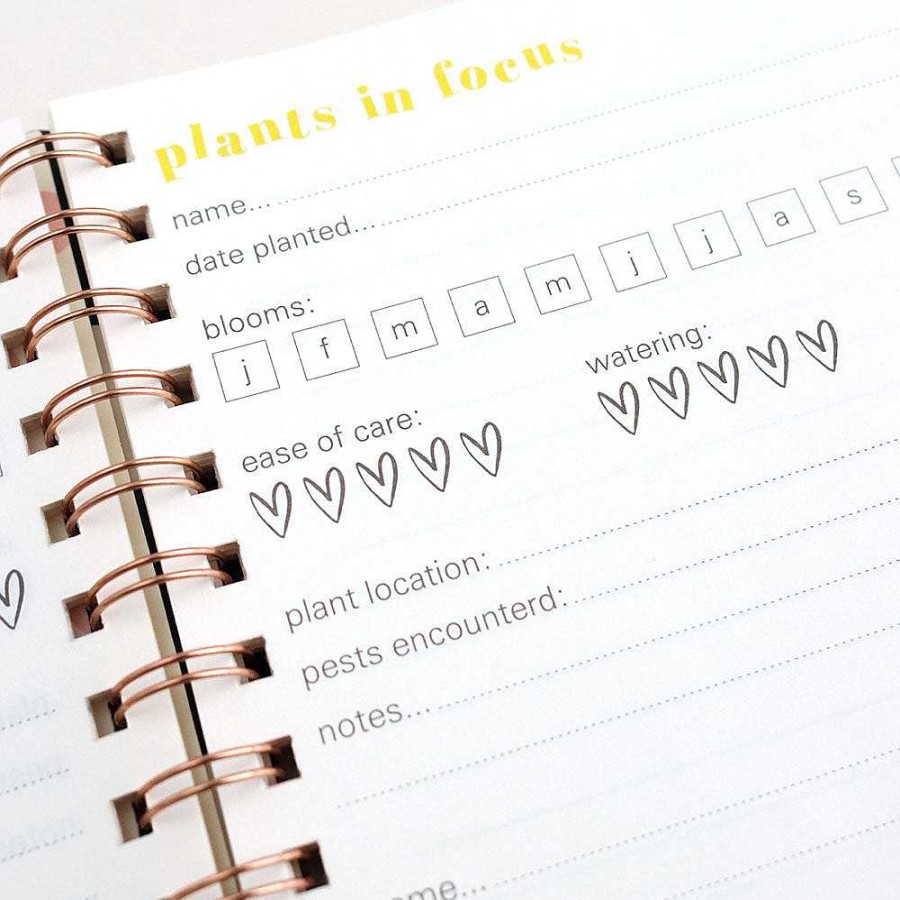 plants in focus
name...
date planted...
blooms:
j f m a m j j a s
watering:
ease of care:
plant location:
pests encounterd:
notes...